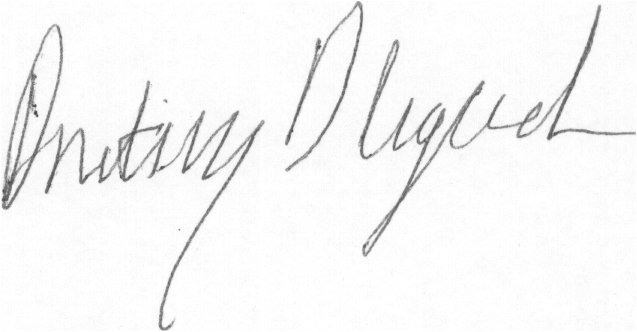 Dmitriy Dligach